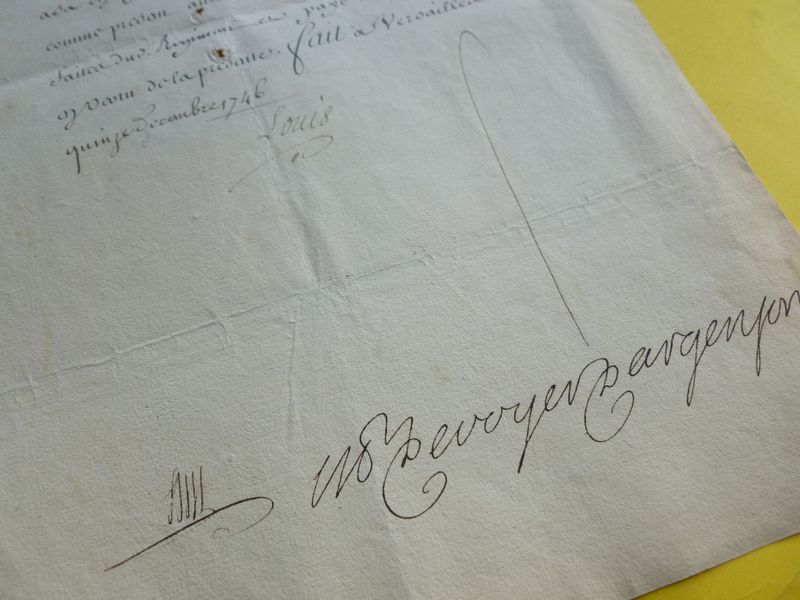 comme présan
dud. Regiment et payé
en Vertu de la présente. fait a Versailles
quinze Decembre 1746
Louis
M P De voyer D argenson